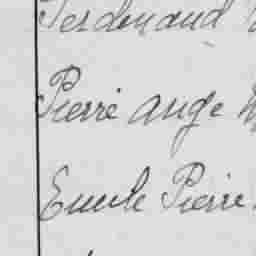 Ferdinand
Pierre ange
Emile Pierre